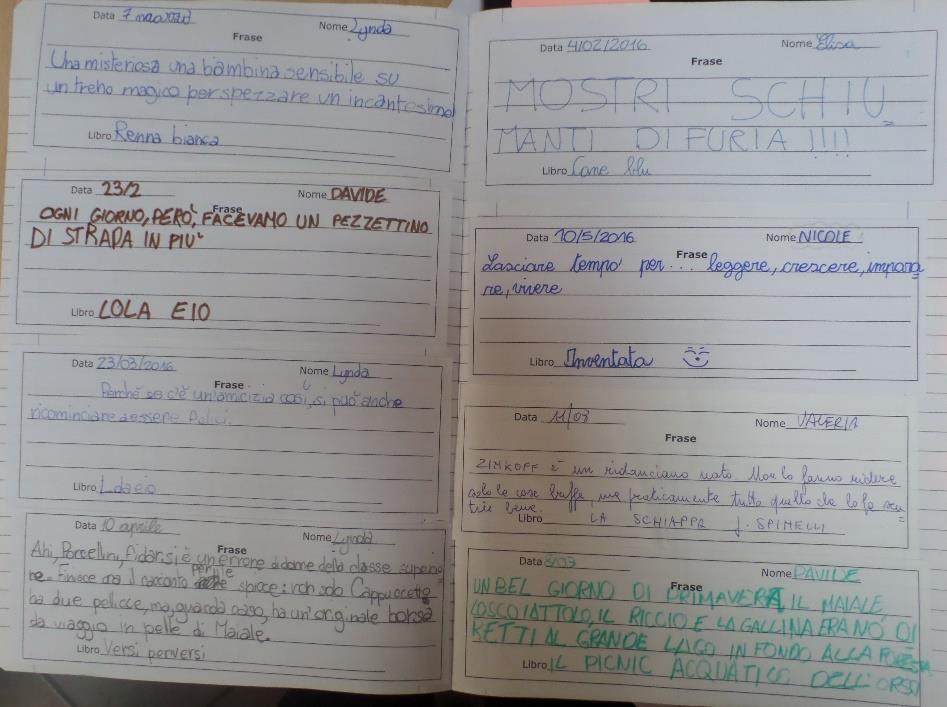 Data 7 marzo Nome Lynda
Frase
Una misteriosa una bambina sensibile su
un treno magico per spezzare un incantesimo
Libro Renna bianca
Data 23/2 Nome DAVIDE
Frase
OGNI GIORNO, PERÒ, FACEVAMO UN PEZZETTINO
DI STRADA IN PIU'
Libro LOLA E IO
Data 23/03/2016 Nome Lynda
Frase
Perchè se c'è un'amicizia così, si può anche
ricominciare a essere felici.
Libro Lola e io
Data 10 aprile Nome Lynda
Frase
Ahi, Porcellini, fidarsi è un errore a dame della classe superio
re. Finisce ora il racconto perchè spicce: non solo Cappuccetto
ha due pellicce, ma, guarda caso, ha un'originale borsa
da viaggio in pelle di Maiale.
Libro Versi perversi
Data 4/02/2016 Nome Elisa
Frase
MOSTRI SCHIU
MANTI DI FURIA !!!!
Libro Cane blu
Data 10/5/2016 Nome NICOLE
Frase
Lasciare tempo per... leggere, crescere, impara
re, vivere
Libro Inventata
Data 11/03 Nome VALERIA
Frase
ZINKOFF è un ridanciano nato. Non lo fanno ridere
solo le cose buffe, ma praticamente tutto quello che lo fa sen
tire bene.
Libro LA SCHIAPPA J. SPINELLI
Data 8/03 Nome DAVIDE
Frase
UN BEL GIORNO DI PRIMAVERA, IL MAIALE,
LO SCOIATTOLO, IL RICCIO E LA GALLINA ERANO DI
RETTI AL GRANDE LAGO IN FONDO ALLA FORESTA
Libro IL PICNIC ACQUATICO DELL'ORSO